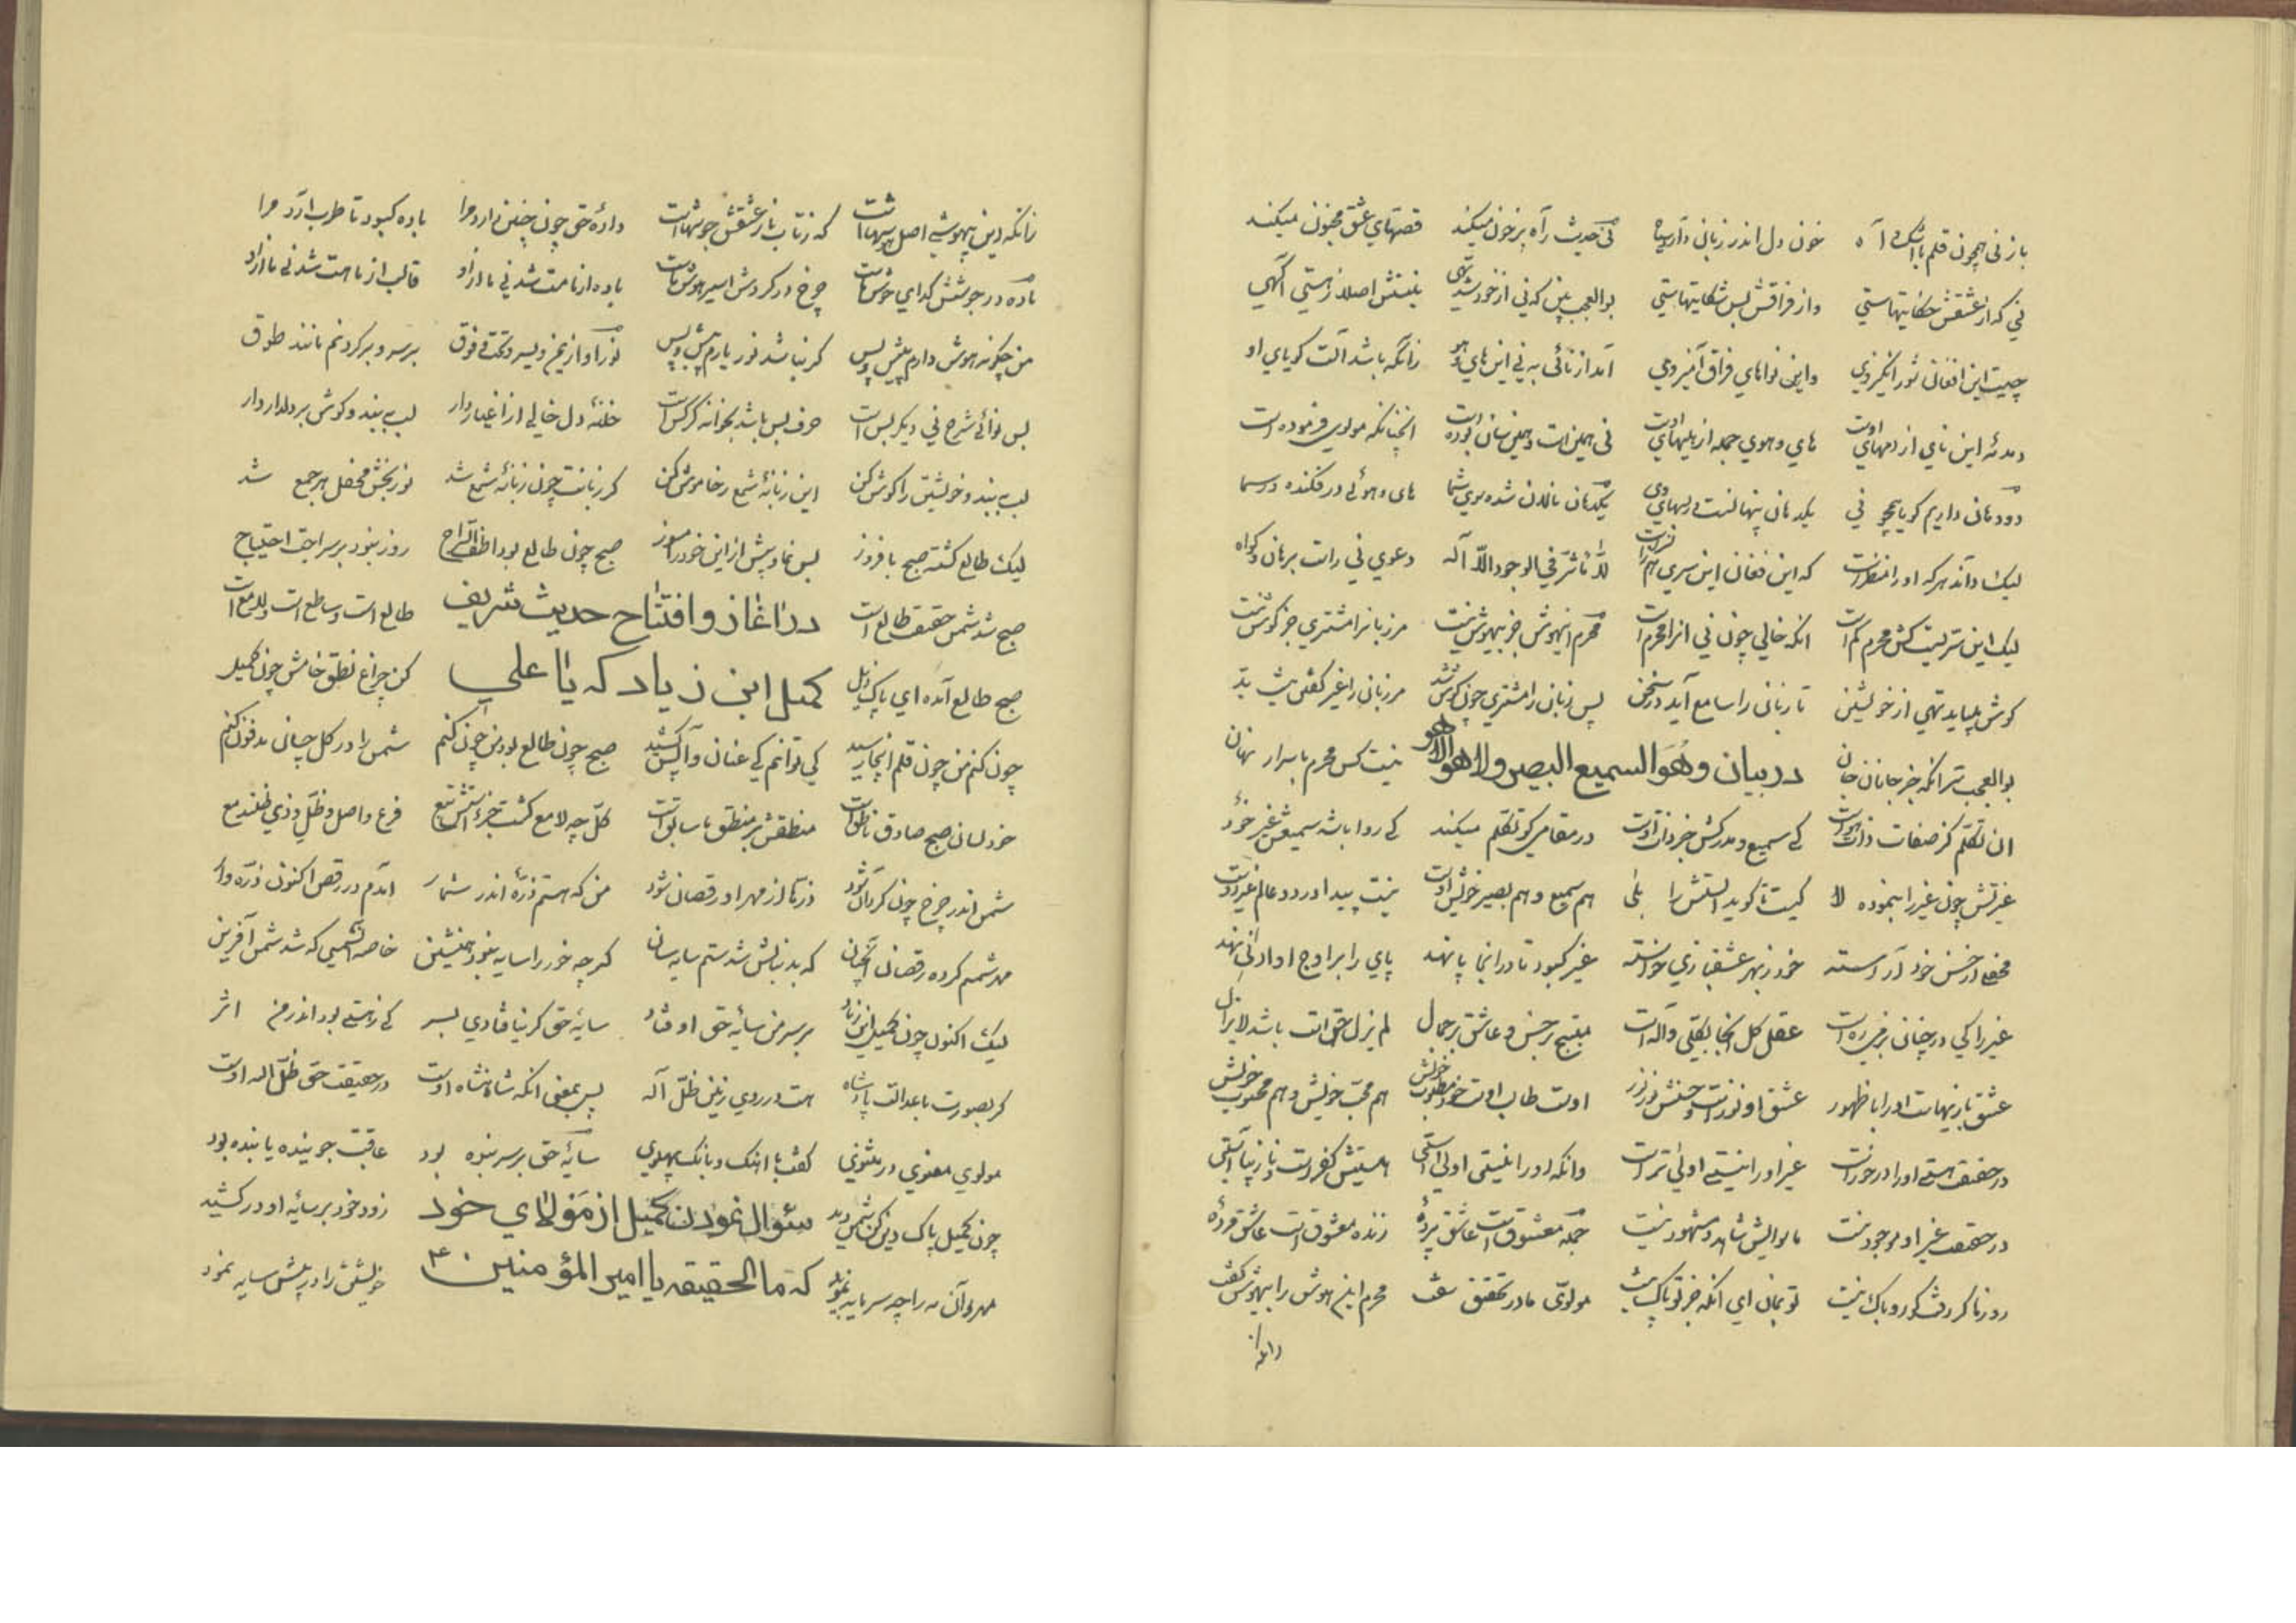 باز نی همچون قلم با اشک و آه خون دل اندر زبان دارد سیاه نی حدیث راه پر خون میکند قصهای عشق مجنون میکند
نی که از عشقش حکایتهاستی واز فراقش بس شکایتهاستی بوالعجب بین که نی از خود شد تهی نیستش اصلا ز هستی آگهی
چیست این افغان شور انگیز وی واین نواهای فراق آمیز وی آمد از نائی به نی این های و هو زانکه باشد آلت گویای او
دمدمه این نای از دمهای اوست های و هوی جمله از هیهای اوست نی همین است و همین سان بوده است آنچنانکه مولوی فرموده است
دو دهان داریم گویا همچو نی یکدهان پنهانست در لبهای وی یکدهان نالان شده سوی شما های و هوئی در فکنده در سما
لیک داند هر که او را منظر است که این فغان این سری هم زان سر است لا مؤثر فی الوجود الا اله دعوی نی راست برهان و گواه
لیک این سریست کش محرم کم است آنکه خالی چون نی آنرا محرم است محرم این هوش جز بیهوش نیست مر زبانرا مشتری جز گوش نیست
گوش میباید تهی از خویشتن تا زبانی را سامع آید در سخن پس زبان را مشتری چون گوش شد مر زبان را غیر گفتن
بوالعجب تر آنکه جز جانان جان در بیان وهو السمیع البصیر ولا هو الا هو نیست کس محرم باسرار نهان
آن تکلم کز صفات ذات هوست کی سمیع و مدرکش جز ذات اوست در مقامی کو تکلم میکند کی روا باشد سمیعش غیر خود
غیرتش چون غیر را بنموده لا کیست تا گوید الستش را بلی هم سمیع و هم بصیر خویش اوست نیست پیدا در دو عالم غیر دوست
محفلی از حسن خود آراسته خود ز بهر عشقبازی خواسته غیر کبود تا در آنجا پا نهد پای را بر اوج او ادنی نهد
غیر را کی در چنان بزمی ره است عقل کل آنجا بکلی واله است مبتهج بر حسن و عاشق بر جمال لم یزل حق است باشد لا یزال
عشق بازیهاست او را با ظهور عشق او نور است و حسنش نور نور اوست طالب اوست خود مطلوب خویش هم محب خویش و هم محبوب خویش
در حقیقت هستی او را در خور است غیر او را نیستی اولی تر است وانکه او را نیستی اولی استی هستیش کفر است و نازیباستی
در حقیقت غیر او موجود نیست ماسوایش شاهد و مشهود نیست جمله معشوق است عاشق پرده زنده معشوق است عاشق مرده
روزها گر رفت گو رو باک نیست تو بمان ای آنکه جز تو پاک نیست مولوی ما در تحقیق سفت محرم این هوش را بیهوش گفت
زانکه
زانکه این بیهوشی اصل هوشهاست که ز تاب نار عشقش جوشهاست داده حق چون چنین دارد مرا باده کبود تا طرب آرد مرا
باده در جوشش گدای جوش ماست چرخ در گردش اسیر هوش ماست باده از ما مست شد نی ما از او قالب از ما هست شد نی ما از او
من چگونه هوش دارم پیش و پس گر نباشد نور یارم پیش و پس نور او از یمن و یسر و تحت و فوق بر سر و بر گردنم مانند طوق
بس نوائی شرح نی دیگر بس است حرف بس باشد بخانه گر کس است خانه دل خالی از اغیار دار لب ببند و گوش بر دلدار دار
لب ببند و خویشتن را گوش کن این زبانه شمع را خاموش کن گر زبانت چون زبانه شمع شد نور بخش محفل هر جمع شد
لیک طالع گشته صبح با فروز بس نما و پیش از این خود را مسوز صبح چون طالع بود اطف السراج روز نبود بر سراجت احتیاج
صبح شد شمس حقیقت طالع است در اغاز و افتتاح حدیث شریف طالع است و ساطع است و لامع است
صبح طالع آمده ای پاک ذیل کمیل ابن زیاد که یا علی کن چراغ نطق خامش چون کمیل
چون کنم من چون قلم اینجا رسید کی توانم کی عنان واپس کشید صبح چون طالع بود من چون کنم شمس را در گل چسانی مدفون کنم
خود لسان صبح صادق ناطق است منطقش بر منطق ما سابق است کل چه لامع گشت جزء استش تبع فرع و اصل و ظل و ذی ظلند مع
شمس اندر چرخ چون گردان شود ذره‌ها از مهر او رقصان شود من که هستم ذره اندر شمار آمدم در رقص اکنون ذره وار
مهر شمسم کرده رقصان آنچنان که بدنبالش شدستم سایه سان گر چه خور را سایه نبود همنشین خاصه آن شمسی که شد شمس آفرین
لیک اکنون چون کمیل ابن زیاد بر سر من سایه حق اوفتاد سایه حق گر نیفتادی بسر کی ز هستی بود اندر من اثر
گر بصورت با عدالت پادشاه هست در روی زمین ظل اله پس بمعنی آنکه شاهنشاه اوست در حقیقت حق ظل اله اوست
مولوی معنوی در مثنوی گفت با آهنگ و بانگ پهلوی سایه حق بر سر بنده بود عاقبت جوینده یابنده بود
چون کمیل پاک دین شمس دید سئوال نمودن کمیل از مولای خود زود خود بر سایه او در کشید
مهر و آن مه را چه سرمایه نمود که ما الحقیقه یا امیر المؤمنین ۴۰ خویشتن را در پیش سایه نمود